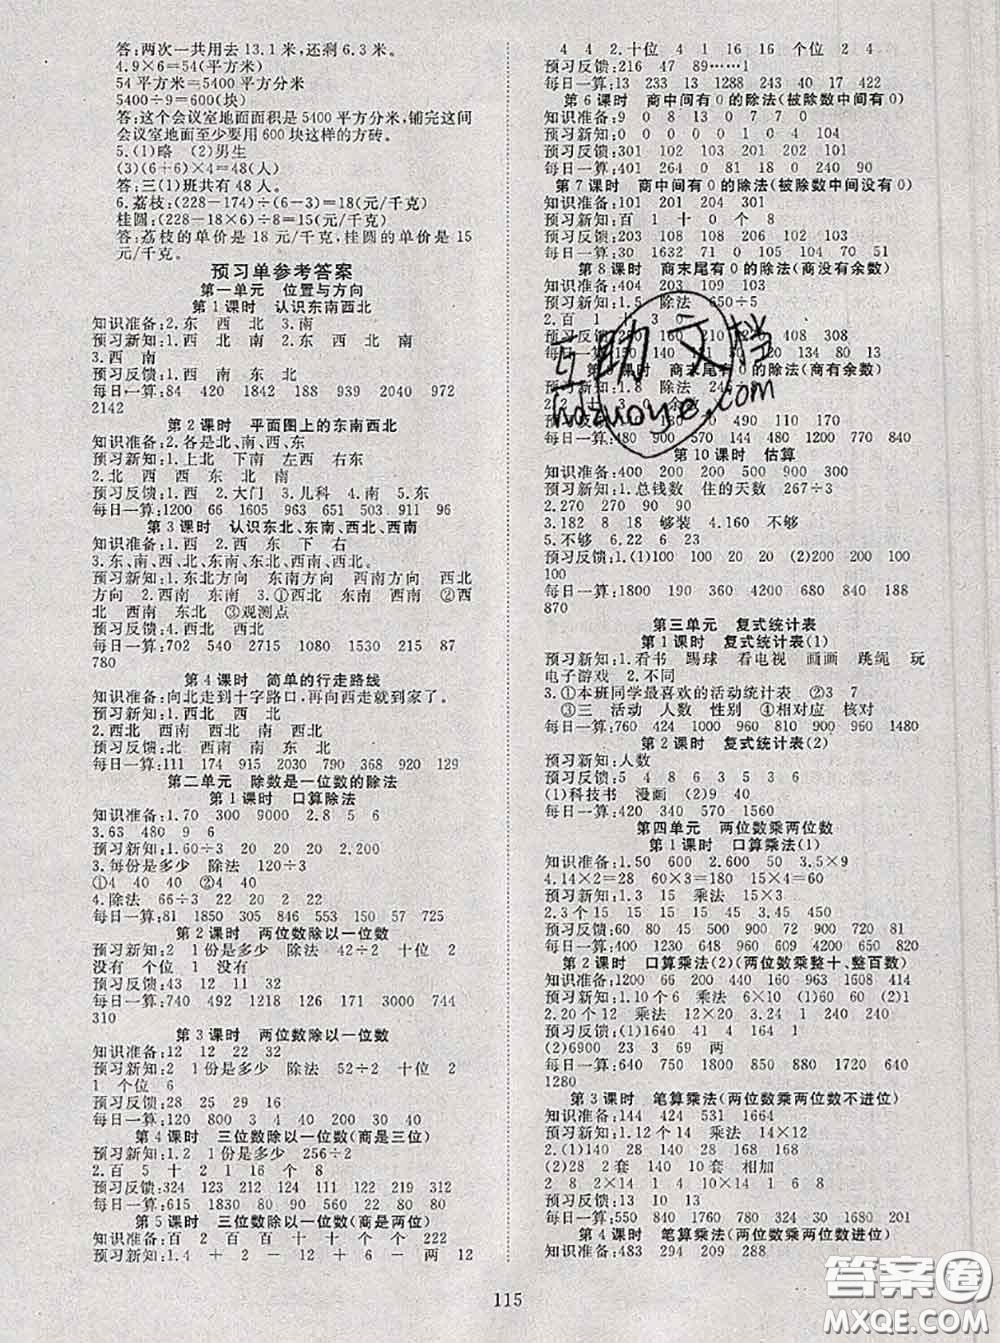 答:两次一共用去 13.1 米,还剩 6.3 米。
4.9×6=54(平方米)
54 平方米=5400 平方分米
5400÷9=600(块)
答:这个会议室地面面积是 5400 平方分米,铺完这间
会议室地面至少要用 600 块这样的方砖。
5.(1)略 (2)男生
(3)(6+6)×4=48(人)
答:三(1)班共有 48 人。
6.荔枝:(228-174)÷(6-3)=18(元/千克)
桂圆:(228-18×6)÷8=15(元/千克)
答:荔枝的单价是 18 元/千克,桂圆的单价是 15
元/千克。
预习单参考答案
第一单元 位置与方向
第 1 课时 认识东南西北
知识准备:2.东 西 北 3.南
预习新知:1.西 北 南 2.东 西 北 南
3.西 南
预习反馈:1.西 南 东 北
每日一算:84 420 1842 488 357 2196 642
2142
第 2 课时 平面图上的东南西北
知识准备:2.各是北、西、南、东
预习新知:1.上北 下南 左西 右东
2.北 西 西 东 北 南
预习反馈:1.西 2.大门 3.儿科 4.南 5.南
每日一算:1200 66 1605 960 963 651 503 911 96
第 3 课时 认识东北、东南、西北、西南
知识准备:1.西 2.西 东 下 右
3.东、南、西、北、东南、东北、西南、西北。
预习新知:1.东北方向 东南方向 西南方向 西北
方向 2.西南 西北 3.①西南 东南 ②西
北 西南 东北 ③观测点
预习反馈:4.西北 西南
每日一算:702 540 2715 1080 1530 1208 87
780
第 4 课时 简单的行走路线
知识准备:向北走到十字路口,再向西走就到家了。
预习新知:1.西北 西
2.西北 西南 西南 西北 西
预习反馈:北 西南 南 东北 南
每日一算:111 174 915 2030 790 900 360 67
第二单元 除数是一位数的除法
第 1 课时 口算除法
知识准备:1.70 300 9000 2.8 5 6
3.63 480 9 6
预习新知:1.60÷3 20 20 20 2.200
3.每份是多少 除法 120÷3
①4 40 40 ②4 40
4.除法 66÷3 22 20 2 22
每日一算:81 1850 305 846 553 150 57 725
第 2 课时 两位数除以一位数
预习新知:2 1份是多少 除法 42÷2 十位 2
没有 个位 1 没有
预习反馈:43 11 32
每日一算:740 492 1218 126 171 0 1000 444
310
第 3 课时 两位数除以一位数
知识准备:12 12 22 32
预习新知:2 1份是多少 除法 52÷2 十位 2
1 个位 6
预习反馈:28 25 29 16
每日一算:120 800 3 4 200 30 40
第 4 课时 三位数除以一位数(商是三位)
预习新知:1.2 1份是多少 256÷2
2.百 5 十 2 1 16 个 8
预习反馈:324 123 212 324 111 122 219 112
每日一算:615 1830 80 82 56 22 80 80
第 5 课时 三位数除以一位数(商是两位)
知识准备:百 2 百 百 十 十 个 个 222
预习新知:1.4 十 2 - 十 6 - 两 12
4 4 2.十位 4 1 16 16 个位 2 4
预习反馈:216 47 89……1
每日一算:13 233 13 1288 243 40 17 422
第 6 课时 商中间有 0 的除法(被除数中间有 0)
知识准备:9 0 8 13 0 7 7 0
预习新知:0 0 0 0 1 0 4 104
预习反馈:301 102 101 302
每日一算:401 264 0 81 18 0 240 0
第 7 课时 商中间有 0 的除法(被除数中间没有 0)
知识准备:101 201 204 301
预习新知:百 1 十 0 个 8
预习反馈:203 108 208 109
每日一算:0 208 102 0 105 104 70 51
第 8 课时 商末尾有 0 的除法(商没有余数)
预习新知:1.5 除法 650÷5
2.百 1 1 3 0
408 308
80 134 84 0
商末尾有 0 的除法(商有余数)
预习新知:1.8 除法
每日一算:480 900 570 440 480 1200 770 840
第 10 课时 估算
知识准备:400 200 200 500 900
预习新知:1.总钱数 住的天数 267÷3
2.270 270 90 90
3.182 8 18 够装 4.160 不够
5.不够 6.22 6 23
预习反馈:1.(1)100 100 20 20 (2)200 200
100
每日一算:1800 190 400 360 2800 900 188
870
第三单元 复式统计表
第 1 课时 复式统计表(1)
预习新知:1.看书 踢球 看电视 画画 跳绳 玩
电子游戏 2.不同
3.①本班同学最喜欢的活动统计表 ②3 7
③三 活动 人数 性别 ④相对应 核对
每日一算:760 424 1000 960 810 900 960 1480
第 2 课时 复式统计表(2)
预习新知:人数
预习反馈:5 4 8 6 3 6 5
(1)科技书 漫画 (2)9 40
每日一算:420 340 570 1560
第四单元 两位数乘两位数
第 1 课时 口算乘法(1)
知识准备:1.50 600 2.600 50 3.5×9
4.14×2=28 60×3=180 45×3=135
预习新知:1.3 15 乘法 15×3
2.3 个15 15 15 15 45
预习反馈:60 80 45 500 90 72 900 720 81
每日一算:400 1230 648 1680 420 650 820
第 2 课时 口算乘法(2)(两位数乘整十、整百数)
知识准备:1200 66 200 440 160 400 200
预习新知:1.10个6 乘法 6×10 (1)60 (2)60
2.20个12 乘法 12×20 (3)240 240
预习反馈:(1)1640 41 10 41 164 1640
(2)6900 23 3 69 两
每日一算:560 1500 1800 880 880 1540 440
1280
第 3 课时 笔算乘法(两位数乘两位数不进位)
知识准备:144 424 531 1664
预习新知:1.12个14 乘法 14×12
2.(1)140 28 140 28 168 168
(2)28 2 套 140 10 套 相加
2 8 2×14 1 4 10×14
预习反馈:13 10 50 650
每日一算:550 840 1000 750 324 30 1420 850
第 4 课时 笔算乘法(两位数乘两位数进位)
知识准备:483 294 209 288
115
互助文档
hdzuoye.com
答案圈
MXQE.COM